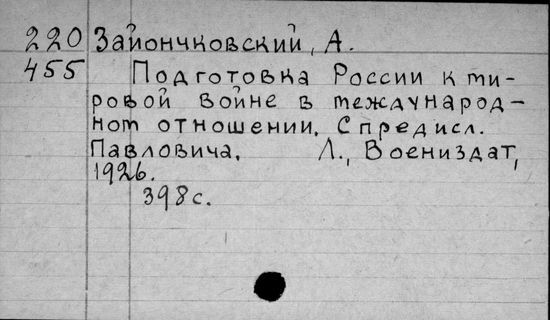 220 Зайончковский, А.
455 Подготовка России к ми-
ровой войне в международ-
ном отношении. С предисл.
Павловича. Л., Воениздат,
1926.
398 с.